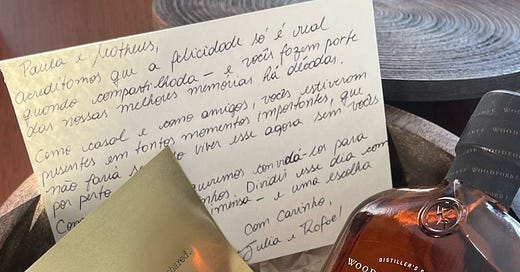 Paula e Matheus,
Acreditamos que a felicidade só é real
quando compartilhada — e vocês fazem parte
das nossas melhores memórias há décadas.
Como casal e como amigos, vocês estiveram
presentes em tantos momentos importantes, que
não faria viver esse agora sem vocês
por perto queremos convidá-los para
Dividir esse dia com
imensa — e uma escolha
Com carinho,
Julia e Rafael
shared.
WOODFORD
DISTILLER'S
WOOD